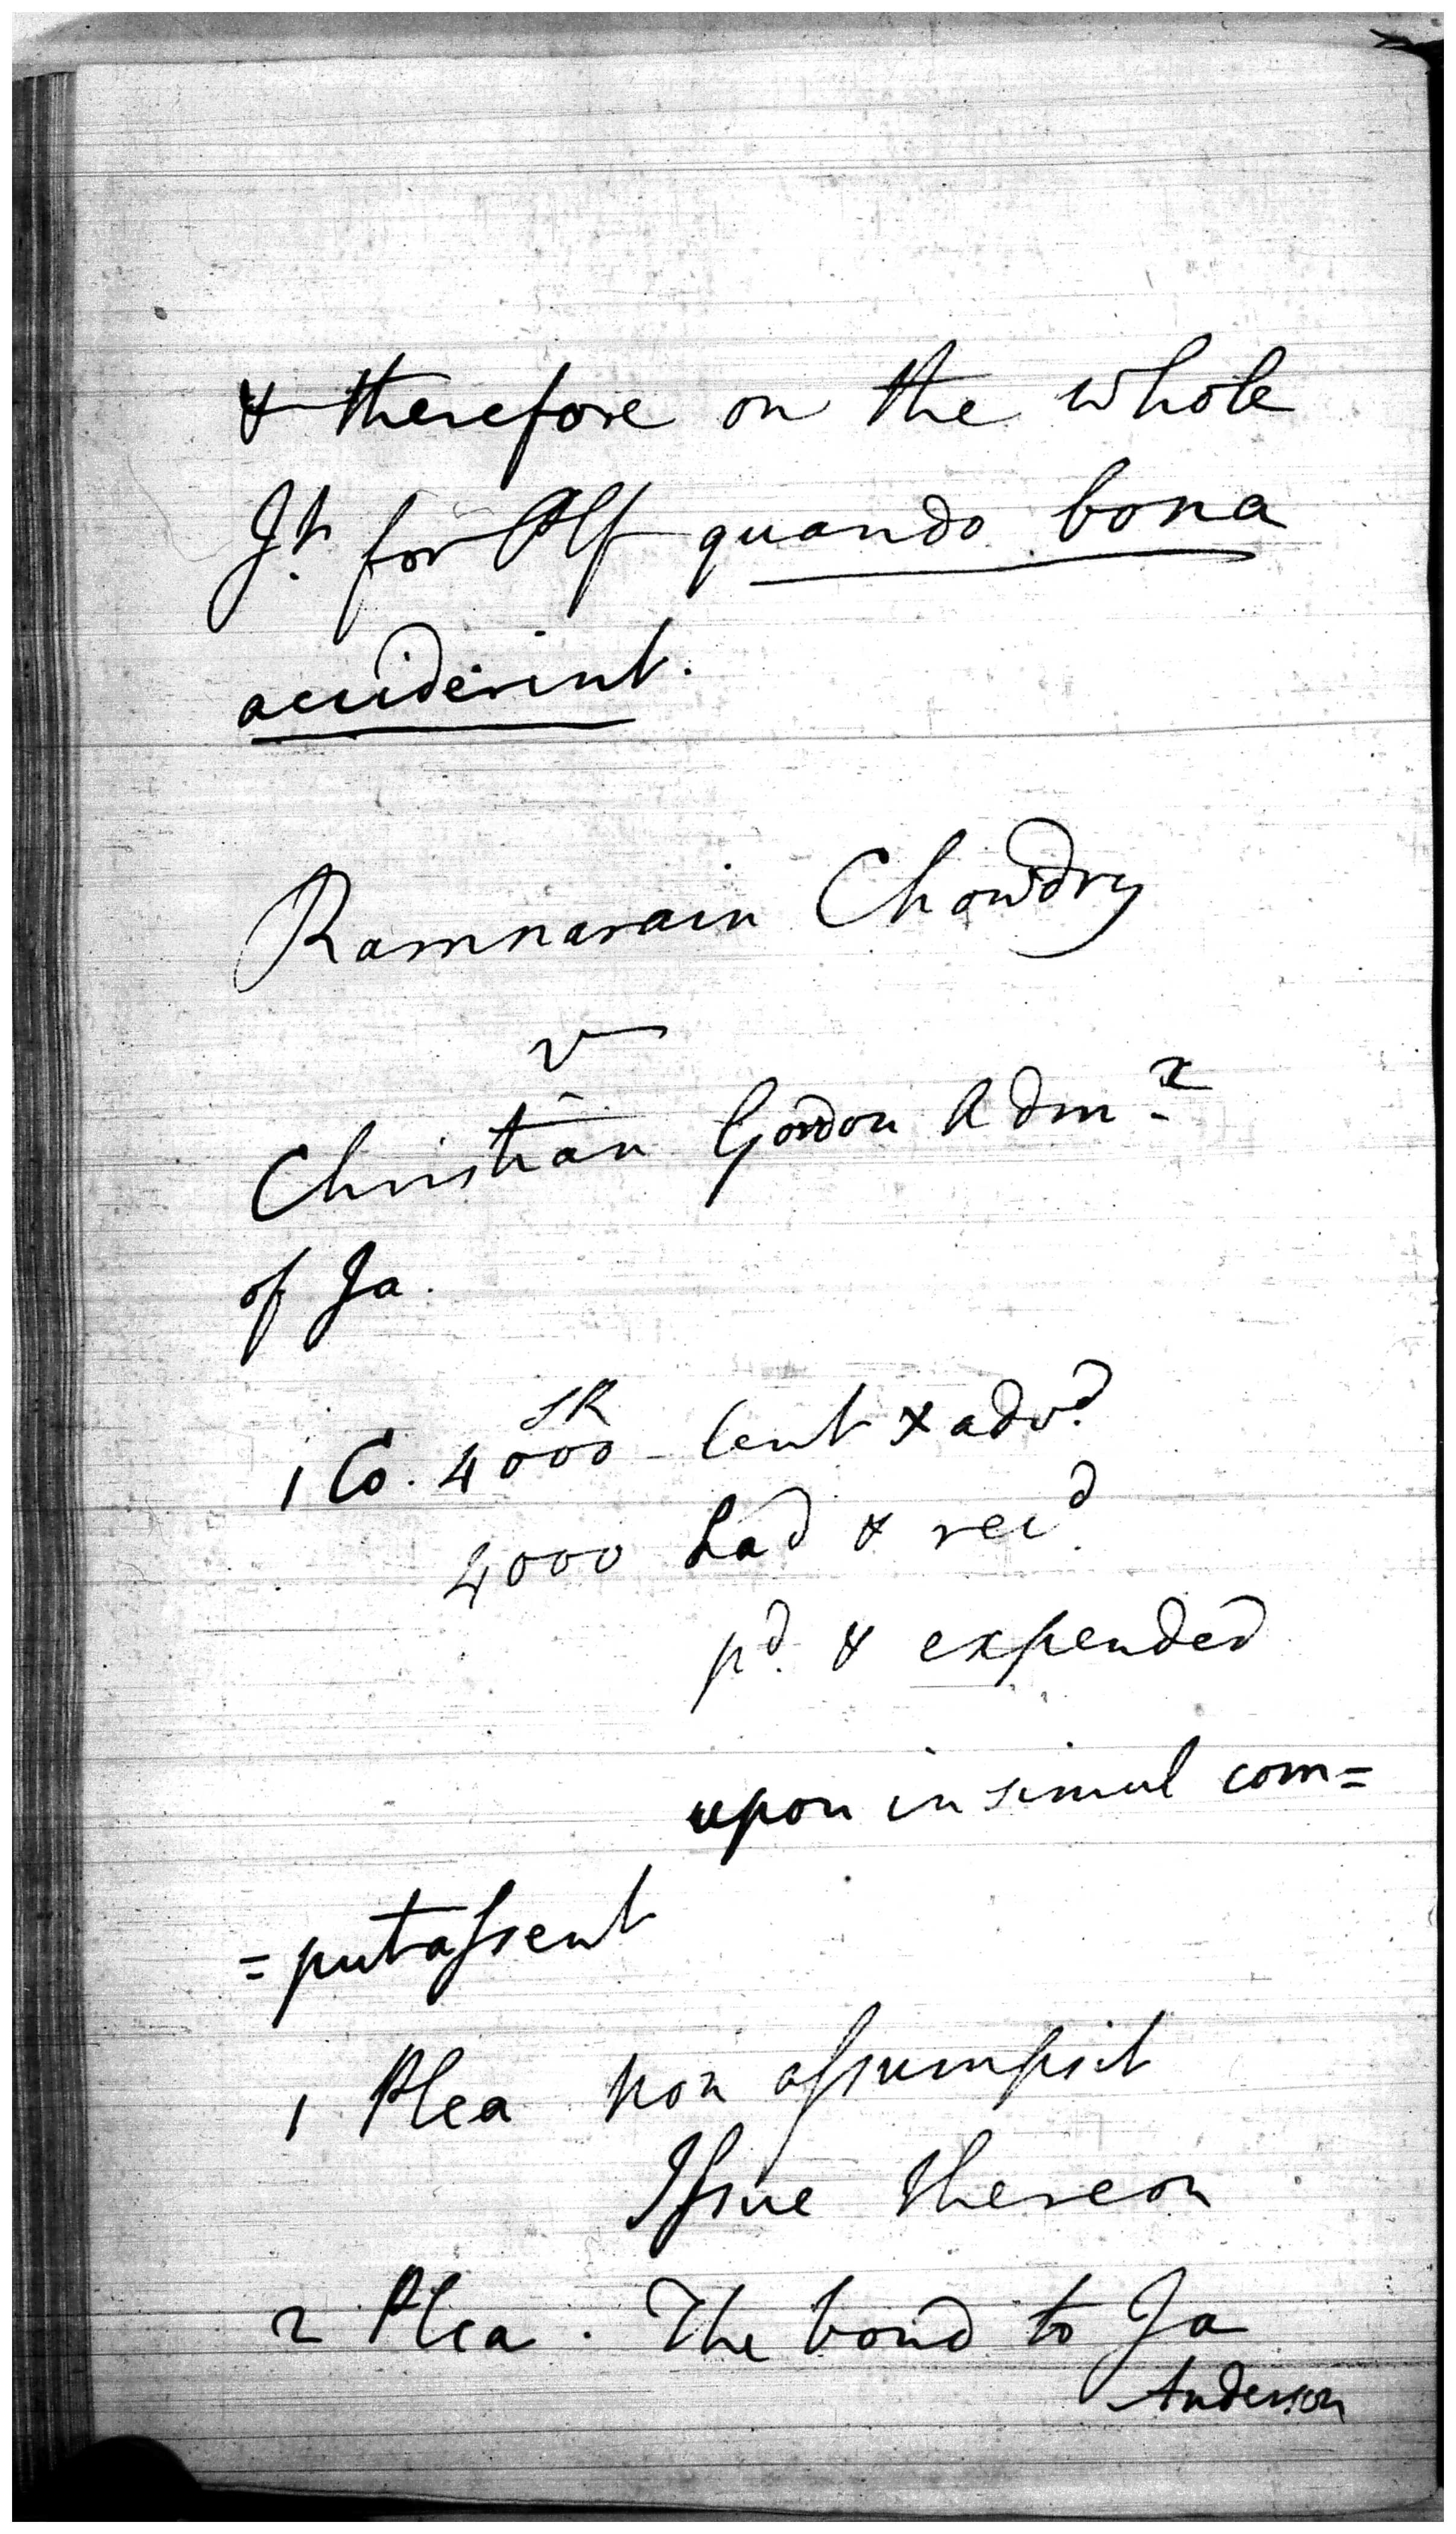 & therefore on the whole
Jt. for Plf quando bona
acciderint.
Ramnarain Chowdry
v
Christian Gordon Admx
of Ja.
SR
1 Co. 4000 - lent & advd.
4000 had & recd.
pd. & expended
upon insimul com=
=putassent
1 Plea non assumpsit
Issue thereon
2 Plea. The bond to Ja
Anderson